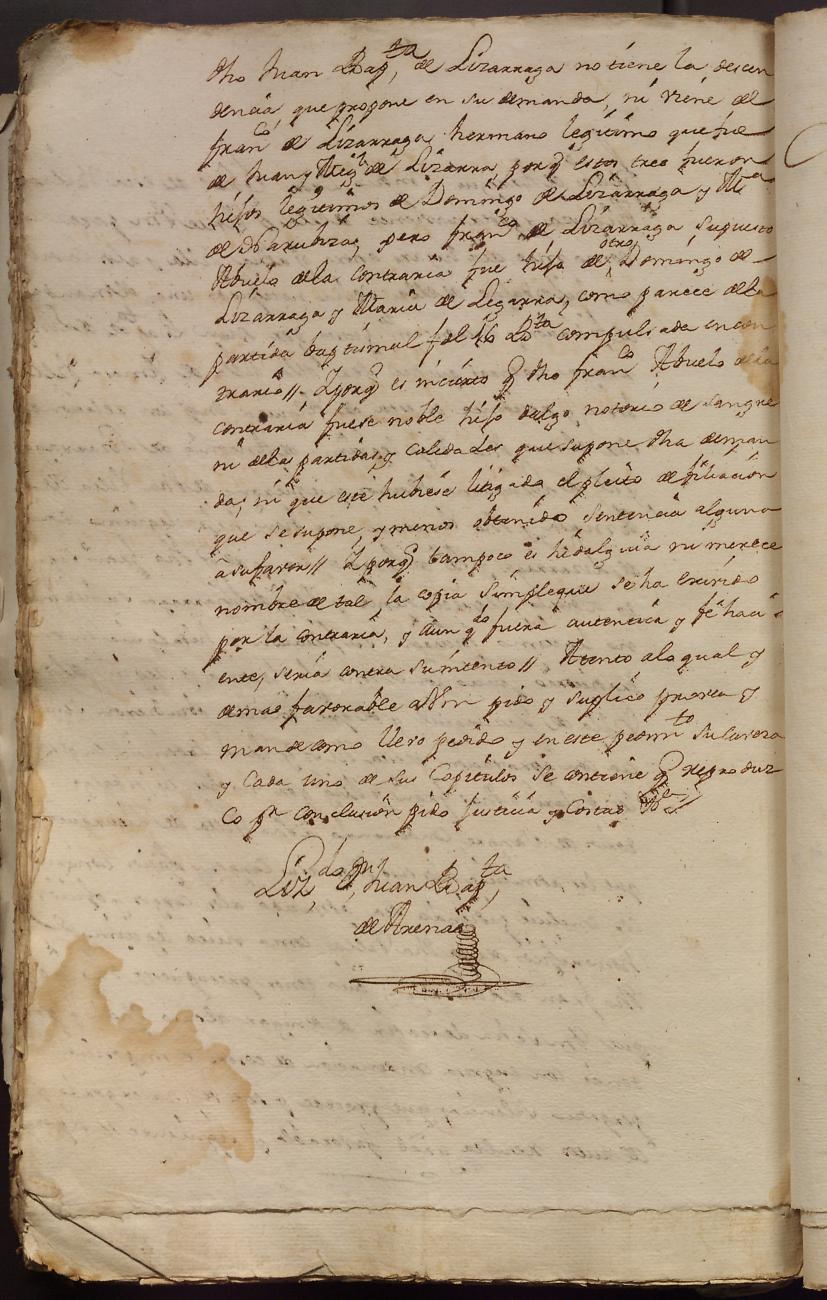 dho Juan Bap,ta de Lizarraga no tiene la descen
dencia que propone en su demanda, ni viene del
franco de Lizarraga hermano legitimo que fue
de Juan y Migl de Lizarra, porq estos tres fueron
hijos legitimos de Domingo de Lizarraga y Ma
de pero franco de Lizarraga supuesto
Abuelo dela contraria fue hijo de otro Domingo de
Lizarraga y Maria de Legarra, como parece dela
partida baptismal fol 16 compulsada encon
trario // Yporq es incierto q dho franco Abuelo dela
contraria fuese noble hijo dalgo notorio de sangre
ni dela partidas y calidades que supone dha deman
da, ni que este hubiese litigado el pleito de filiacion
que se supone, y menos obtenido sentencia alguna
a su favor // Yporq tampoco es hidalguia ni merece
nombre de tal, la copia simple que se ha exivido
por la contraria, y aun qdo fuera autentica y fe haci
ente, seria contra su intento // Atento alo qual y
demas favorable a Vm pido y suplico provea y
mande como llevo pedido y en este pedimto su caveza
y cada uno de sus Capitulos se contiene q reproduz
co pa conclusion pido Justicia y Costas
Lizdo Dn Juan Bap,ta
de Arenas